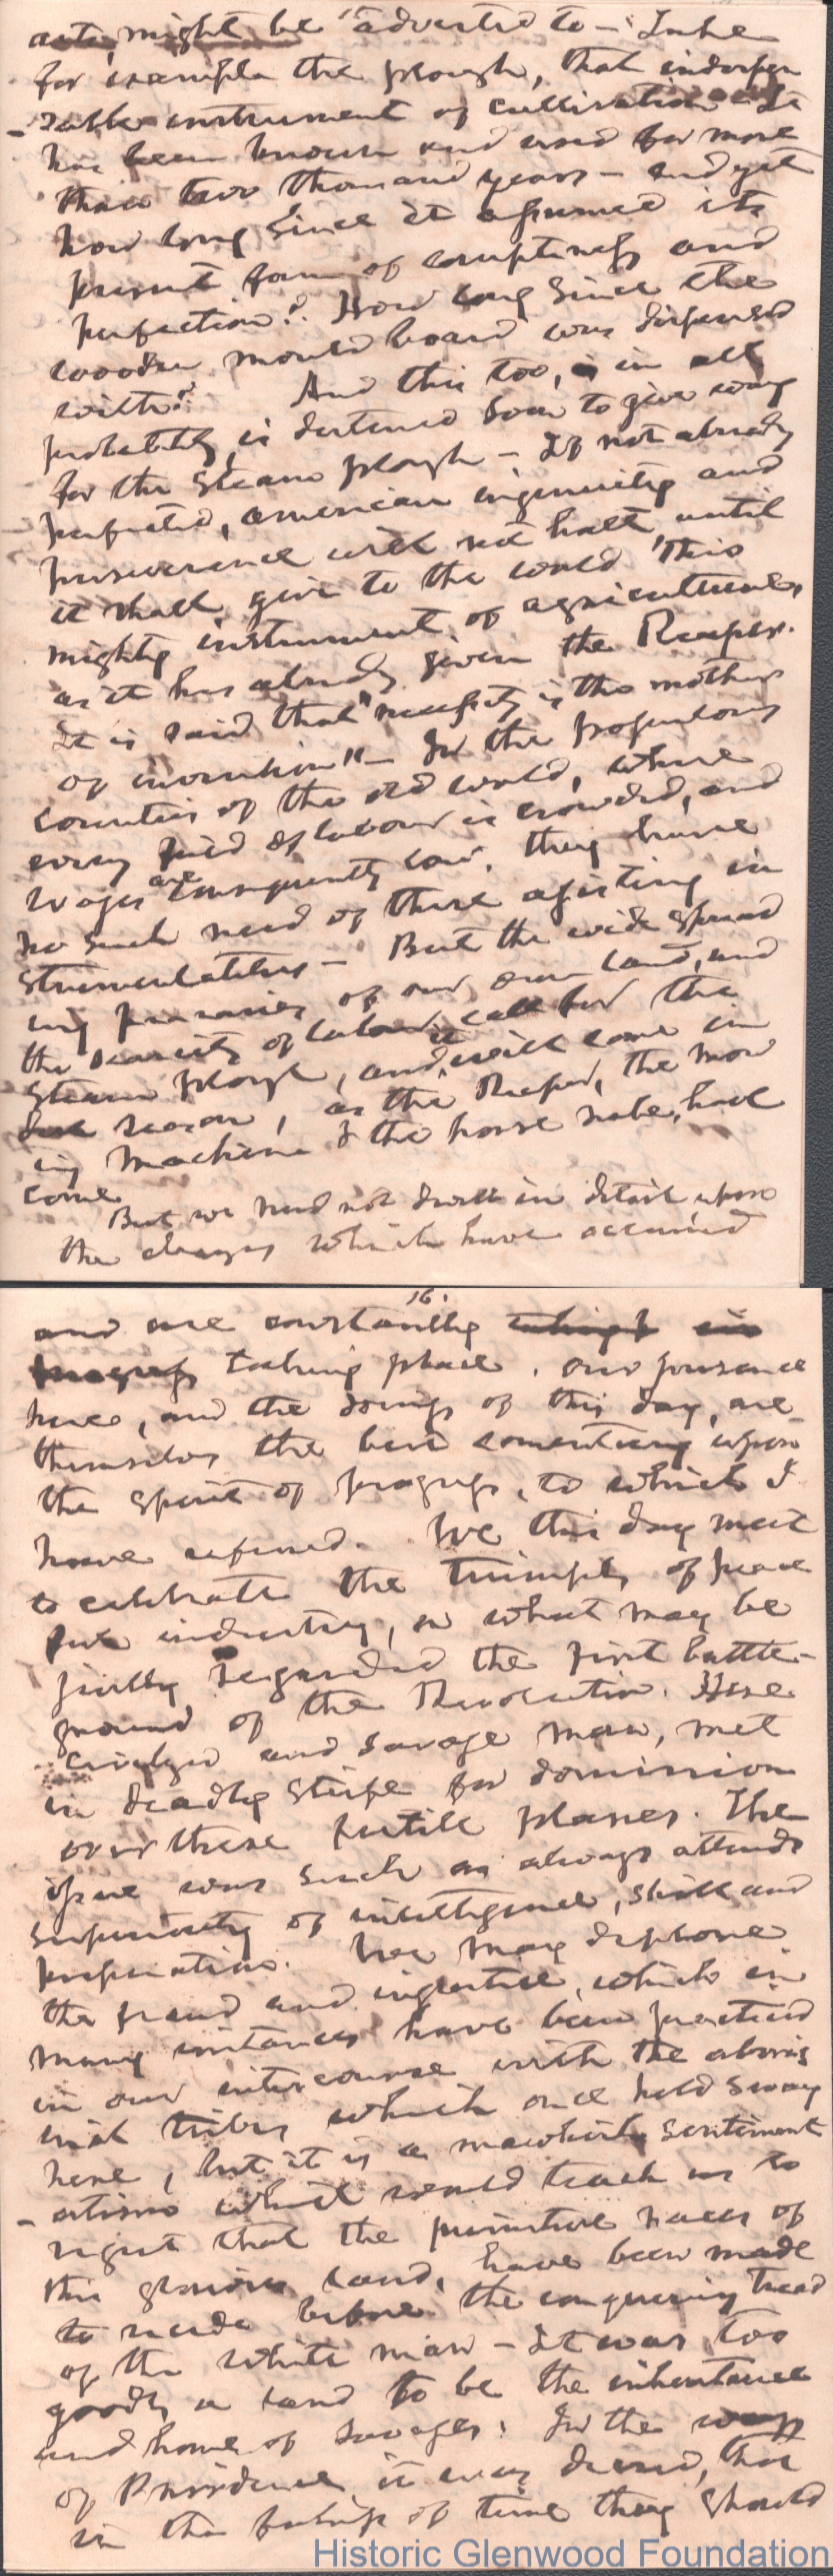 arts, might be adverted to - Take
for example the plough, that indispen
- sable instrument of cultivation - It
has been known and used for more
than two thousand years - and yet
how long since it assumed its
present form of compactness and
perfection? How long since the
wooden mould board was dispensed
with? And this too, in all
probability, is destined soon to give way
for the steam plough - If not already
perfected, american ingenuity and
perseverance will not halt, until
it shall give to the world this
mighty instrument of agriculture,
as it has already given the Reaper.
It is said that "necessity is the mother
of invention" - In the populous
countries of the old world, where
every field of labour is crowded, and
wages are consequently low, they have
no such need of these assisting in
strumentalities - But the wide spread
ing prararies of our own land, and
the scarcity of labour, call for the
steam plough, and it will come in
due season, as the Reaper, the mow
ing machine & the horse rake, have
come.
But we need not dwell in detail upon
the changes which have occurred
16.
and are constantly
progress taking place. Our presence
here, and the doings of this day, are
themselves the best comentary upon
the spirit of progress, to which I
have refered. We this day meet
to celebrate the triumphs of peace
ful industry, on what may be
justly regarded the first battle-
ground of the Revolution. Here
civilized and savage man, met
in deadly strife for dominion
over these fertile planes. The
issue was such as always attends
superiority of intelligence, skill and
preparation. We may deplore
the fraud and injustice, which in
many instances have been practiced
in our intercourse with the aborig
inal tribes which once held sway
here, but it is a mawkish sentiment
- alism which would teach us to
regret that the primitive races of
this glorious land, have been made
to recede before the conquering tread
of the white man - It was too
goodly a land to be the inheritance
and home of savages. In the ways
of Providence it was decreed, that
in the fulness of time they should
Historic Glenwood Foundation